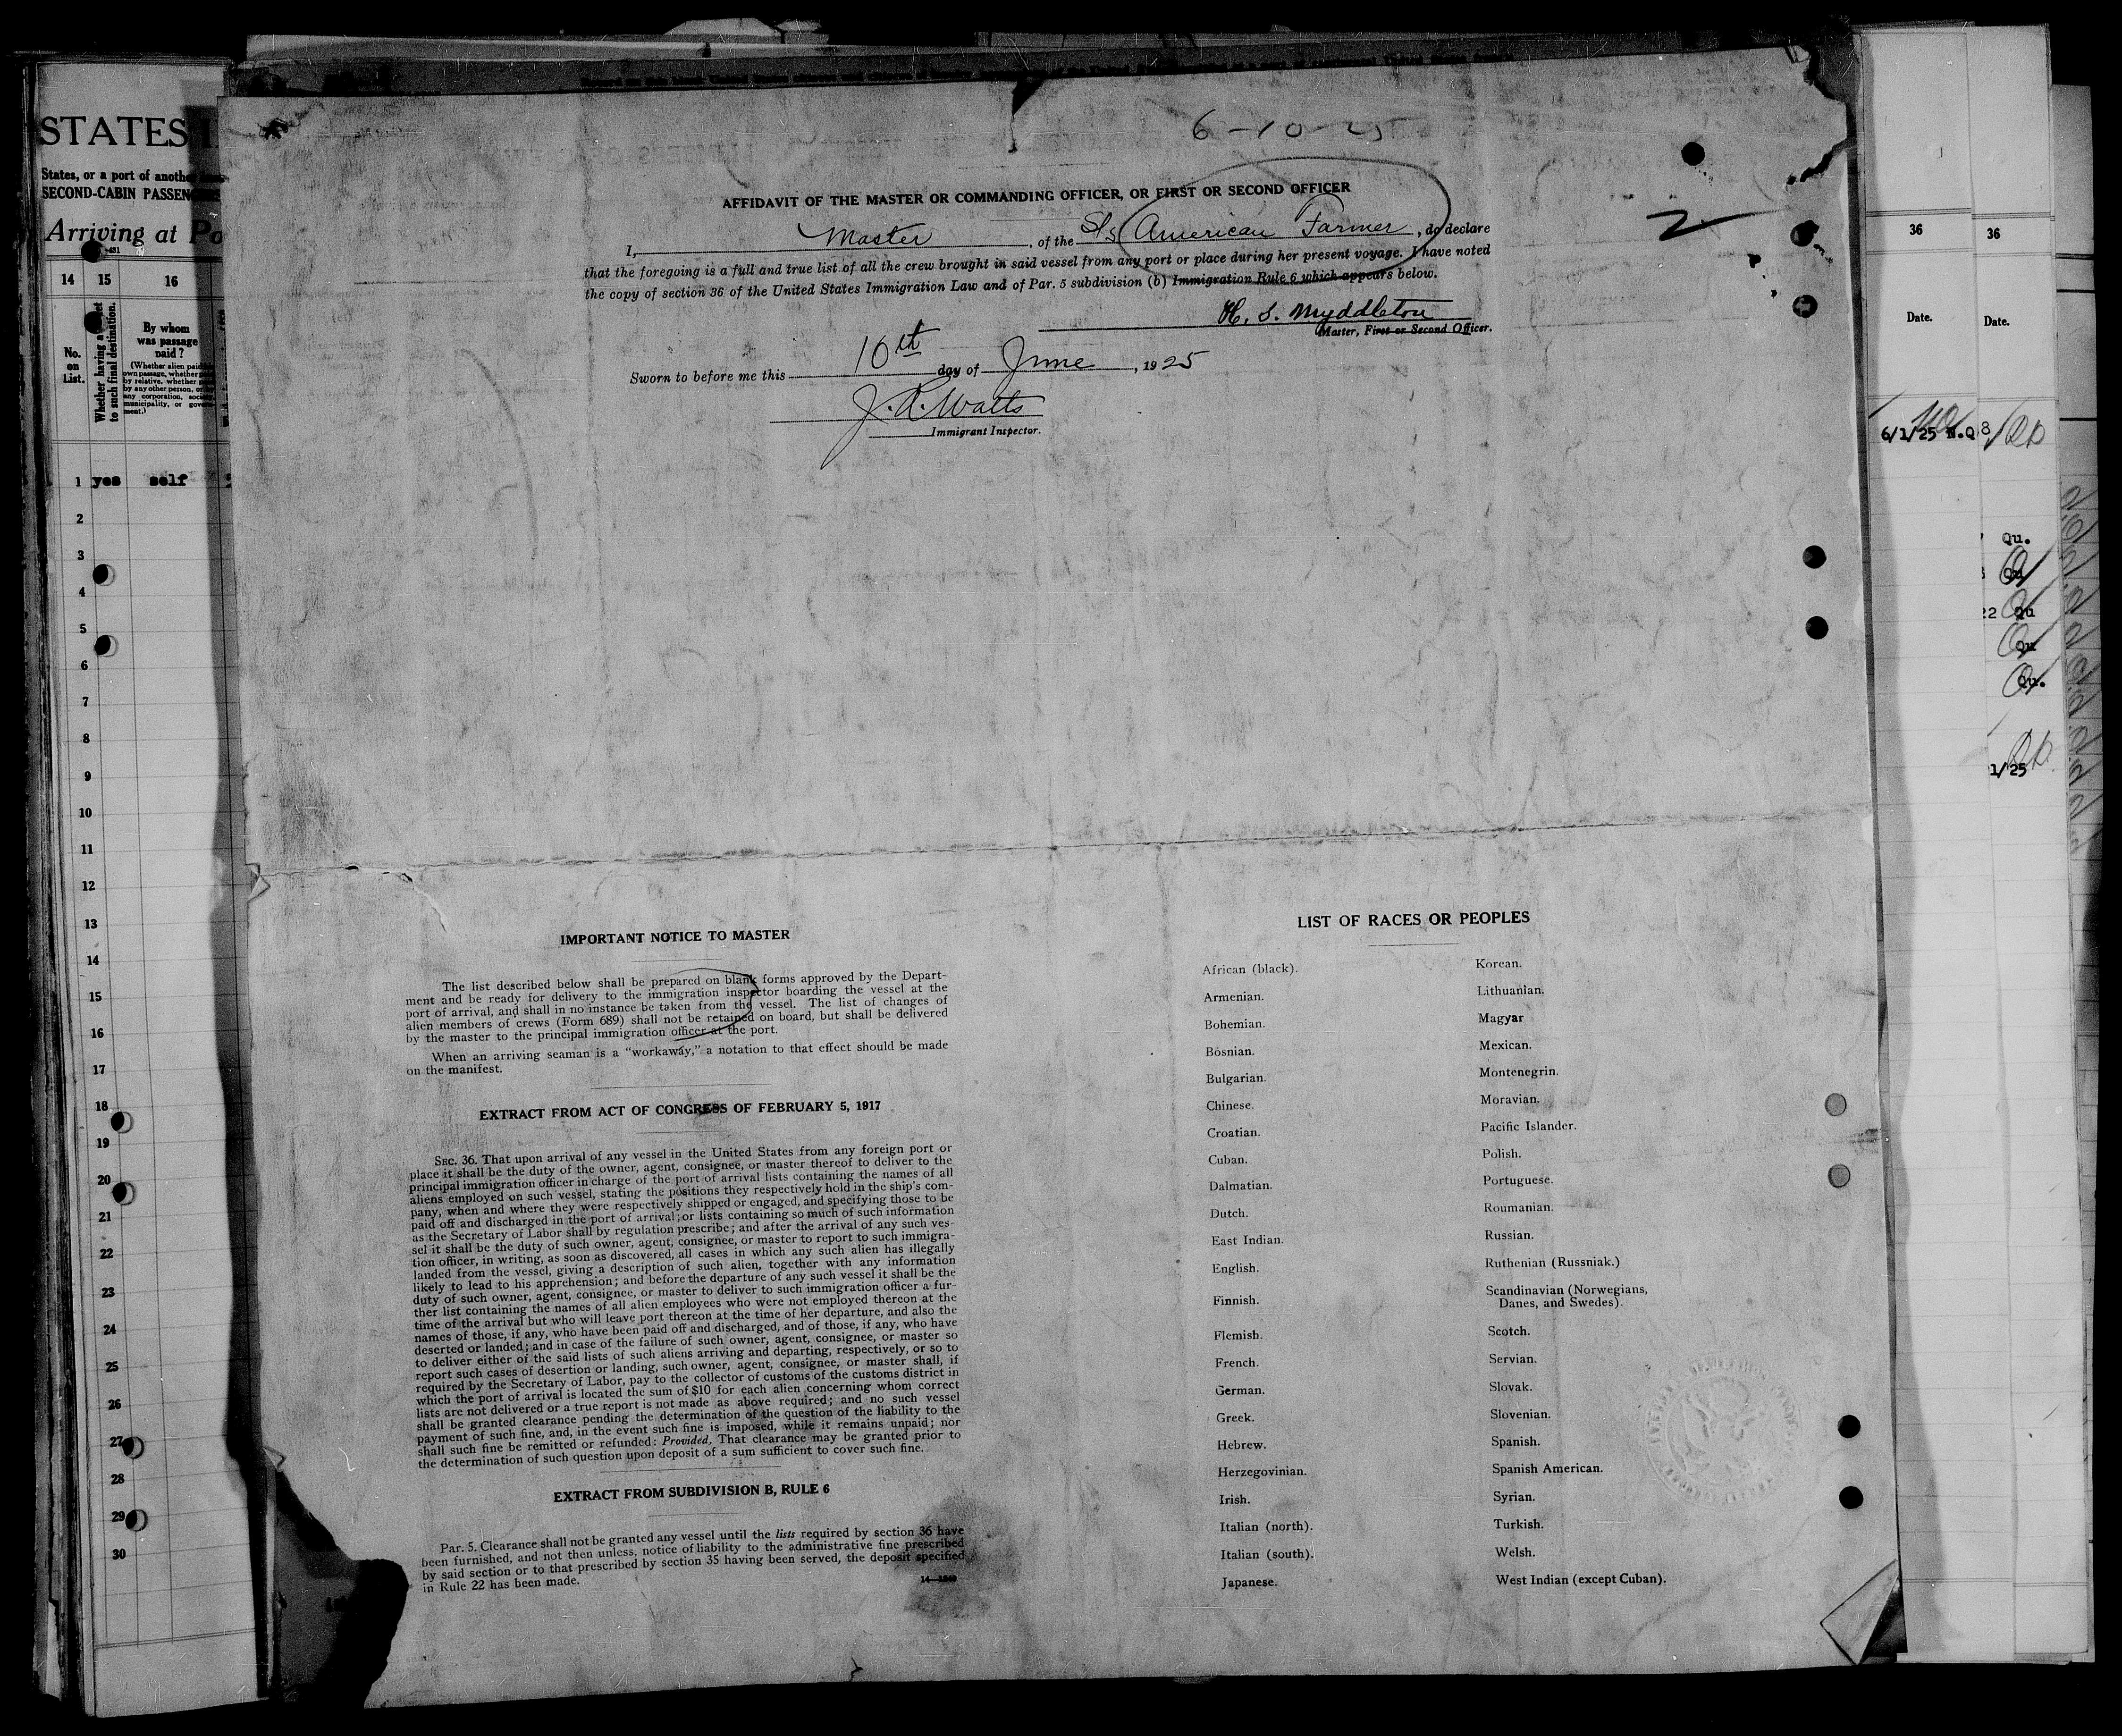 STATES
States, or a port of another
SECOND-CABIN PASSEN
Arriving at Po
14 15 16
No. on List.
Whether having a ticket to such final destination.
By whom
was passage
paid?
(Whether alien paid
own passage, whether
by relative, whether
by any other person, or
any corporation, society,
municipality, or govern-
ment.)
1 yes self
2
3
4
5
6
7
8
9
10
11
12
13
14
15
16
17
18
19
20
21
22
23
24
25
26
27
28
29
30
6-10-25
2
AFFIDAVIT OF THE MASTER OR COMMANDING OFFICER, OR FIRST OR SECOND OFFICER
I, Master, of the S/S American Farmer, do declare
that the foregoing is a full and true list of all the crew brought in said vessel from any port or place during her present voyage. I have noted
the copy of section 36 of the United States Immigration Law and of Par. 5 subdivision (b) Immigration Rule 6 which appears below.
H. S. Myddleton
Master, First or Second Officer.
Sworn to before me this 10th day of June, 1925
J. R. Watts
Immigrant Inspector.
IMPORTANT NOTICE TO MASTER
The list described below shall be prepared on blank forms approved by the Depart-
ment and be ready for delivery to the immigration inspector boarding the vessel at the
port of arrival, and shall in no instance be taken from the vessel. The list of changes of
alien members of crews (Form 689) shall not be retained on board, but shall be delivered
by the master to the principal immigration officer at the port.
When an arriving seaman is a "workaway," a notation to that effect should be made
on the manifest.
EXTRACT FROM ACT OF CONGRESS OF FEBRUARY 5, 1917
SEC. 36. That upon arrival of any vessel in the United States from any foreign port or
place it shall be the duty of the owner, agent, consignee, or master thereof to deliver to the
principal immigration officer in charge of the port of arrival lists containing the names of all
aliens employed on such vessel, stating the positions they respectively hold in the ship's com-
pany, when and where they were respectively shipped or engaged, and specifying those to be
paid off and discharged in the port of arrival; or lists containing so much of such information
as the Secretary of Labor shall by regulation prescribe; and after the arrival of any such ves-
sel it shall be the duty of such owner, agent, consignee, or master to report to such immigra-
tion officer, in writing, as soon as discovered, all cases in which any such alien has illegally
landed from the vessel, giving a description of such alien, together with any information
likely to lead to his apprehension; and before the departure of any such vessel it shall be the
duty of such owner, agent, consignee, or master to deliver to such immigration officer a fur-
ther list containing the names of all alien employees who were not employed thereon at the
time of the arrival but who will leave port thereon at the time of her departure, and also the
names of those, if any, who have been paid off and discharged, and of those, if any, who have
deserted or landed; and in case of the failure of such owner, agent, consignee, or master so
to deliver either of the said lists of such aliens arriving and departing, respectively, or so to
report such cases of desertion or landing, such owner, agent, consignee, or master shall, if
required by the Secretary of Labor, pay to the collector of customs of the customs district in
which the port of arrival is located the sum of $10 for each alien concerning whom correct
lists are not delivered or a true report is not made as above required; and no such vessel
shall be granted clearance pending the determination of the question of the liability to the
payment of such fine, and, in the event such fine is imposed, while it remains unpaid; nor
shall such fine be remitted or refunded: Provided, That clearance may be granted prior to
the determination of such question upon deposit of a sum sufficient to cover such fine.
EXTRACT FROM SUBDIVISION B, RULE 6
Par. 5. Clearance shall not be granted any vessel until the lists required by section 36 have
been furnished, and not then unless, notice of liability to the administrative fine prescribed
by said section or to that prescribed by section 35 having been served, the deposit specified
in Rule 22 has been made.
LIST OF RACES OR PEOPLES
African (black).
Armenian.
Bohemian.
Bosnian.
Bulgarian.
Chinese.
Croatian.
Cuban.
Dalmatian.
Dutch.
East Indian.
English.
Finnish.
Flemish.
French.
German.
Greek.
Hebrew.
Herzegovinian.
Irish.
Italian (north).
Italian (south).
Japanese.
Korean.
Lithuanian.
Magyar
Mexican.
Montenegrin.
Moravian.
Pacific Islander.
Polish.
Portuguese.
Roumanian.
Russian.
Ruthenian (Russniak.)
Scandinavian (Norwegians,
Danes, and Swedes).
Scotch.
Servian.
Slovak.
Slovenian.
Spanish.
Spanish American.
Syrian.
Turkish.
Welsh.
West Indian (except Cuban).
36
Date.
6/1/25 N.Q
36
Date.
8
Qu.
Qu
22 Qu
Qu
Qu.
1/25